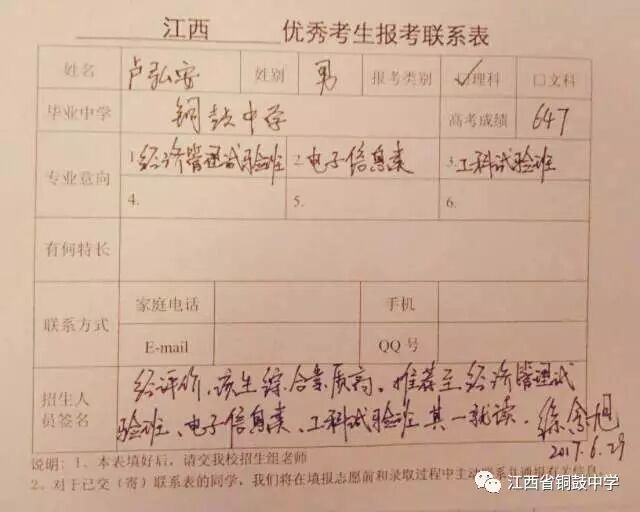 江西 优秀考生报考联系表
姓名 卢弘安 姓别 男 报考类别 ☑理科 口文科
毕业中学 铜鼓中学 高考成绩 647
专业意向 1.经济管理试验班 2.电子信息类 3.工科试验班
4. 5. 6.
有何特长
联系方式 家庭电话 手机
E-mail QQ 号
招生人员签名 经评价,该生综合素质高。推荐至经济管理试
验班、电子信息类、工科试验班其一就读.
2017.6.29
说明:1、本表填好后,请交我校招生组老师
2、对于已交(寄)联系表的同学,我们将在填报志愿前和录取过程中主动联系并通报有关信息
江西省铜鼓中学